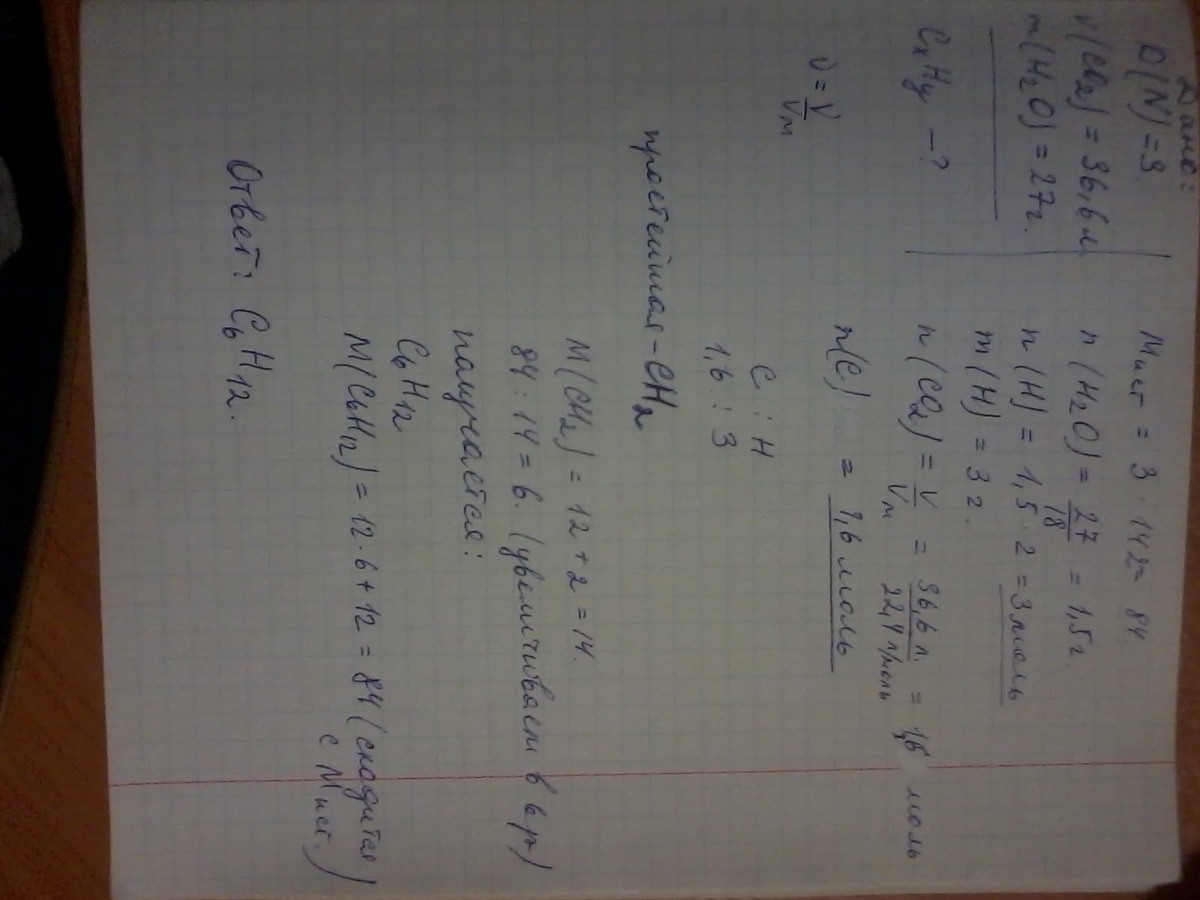 Дано:
D(N)=3.
V(CO2) = 36,6 л
m(H2O) = 27г.
CxHy - ?
ν = V/Vм
Mист = 3 · 142= 84
n(H2O) = 27/18 = 1,5г.
n(H) = 1,5 · 2 = 3 моль
m(H) = 3 г.
n(CO2) = V/Vм = 36,6 л./22,4 л/моль = 1,6 моль
n(C) = 1,6 моль
C : H
1,6 : 3
простейшая - CH2
M(CH2) = 12 + 2 = 14.
84 : 14 = 6. (увеличивает в 6 р)
получается:
C6H12
M(C6H12) = 12·6 + 12 = 84 (сходится
с Mист.)
Ответ: C6H12.